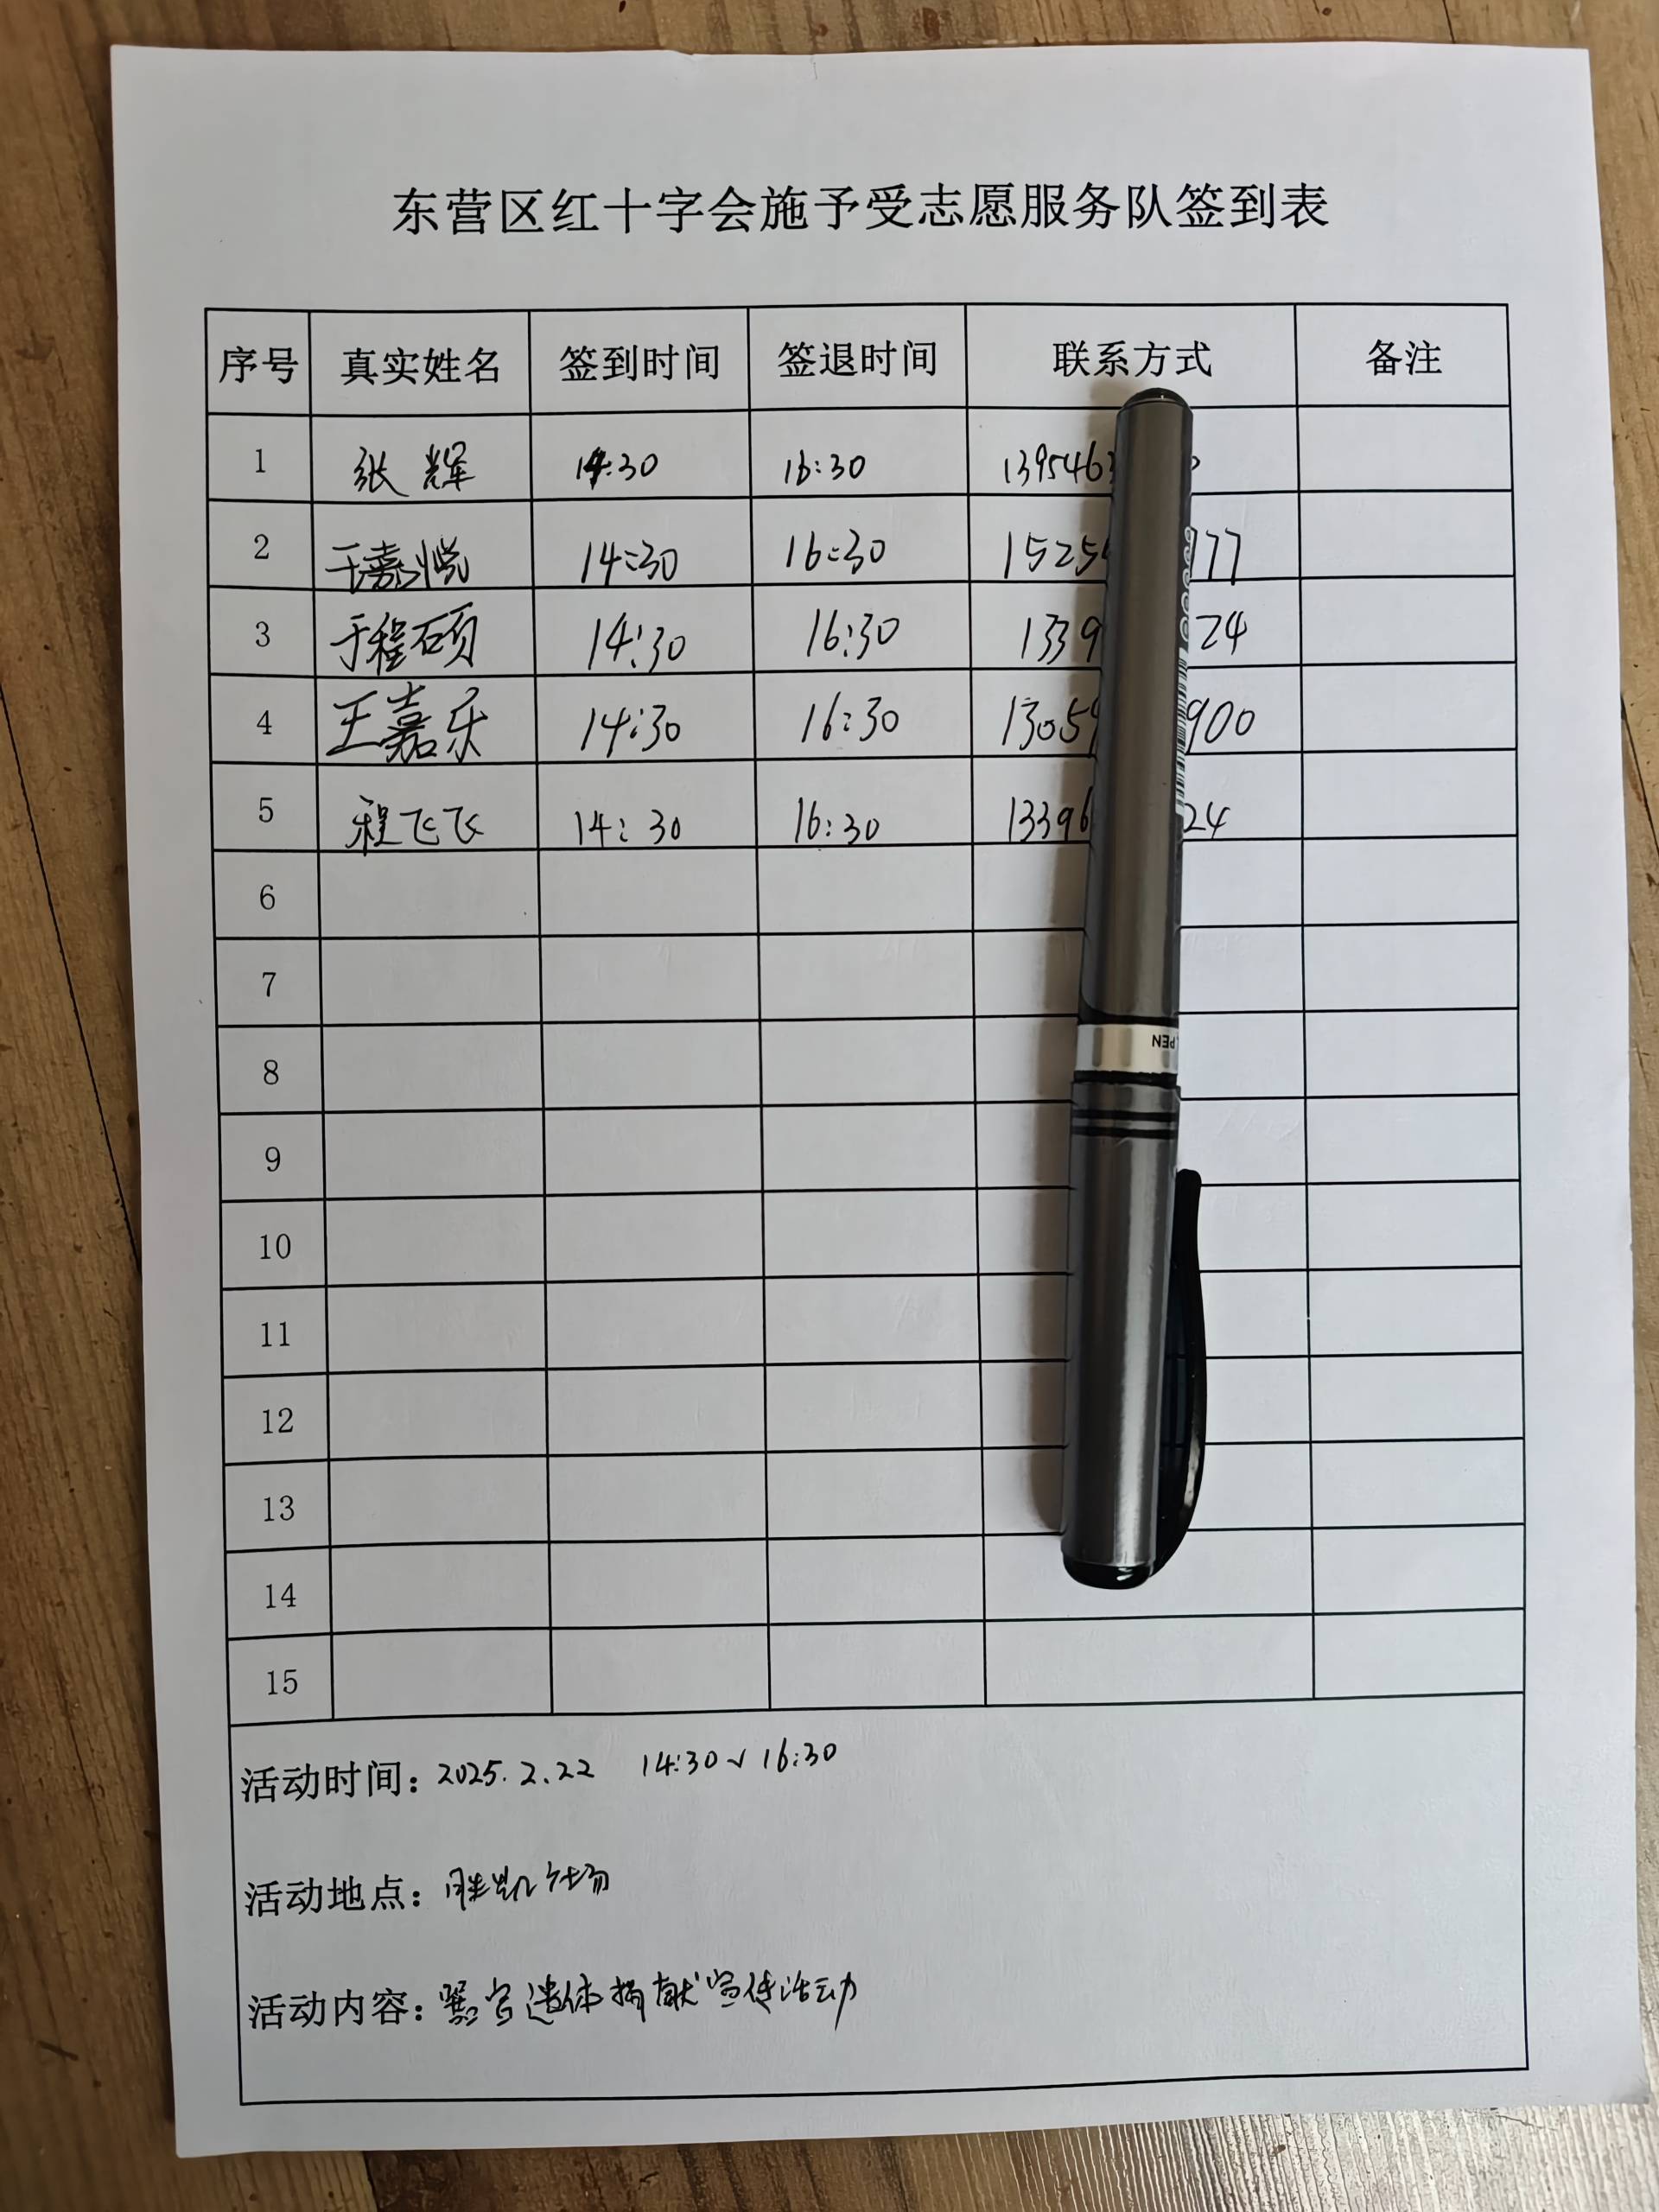 东营区红十字会施予受志愿服务队签到表
序号 真实姓名 签到时间 签退时间 联系方式 备注
1 张辉 14:30 16:30 1395463
2 于嘉悦 14:30 16:30 1525 777
3 于程硕 14:30 16:30 1339 24
4 王嘉乐 14:30 16:30 13059 900
5 程飞飞 14:30 16:30 13396 24
6
7
8
PEN
9
10
11
12
13
14
15
活动时间：2025.2.22 14:30~16:30
活动地点：胜凯
活动内容：器官遗体捐献宣传活动